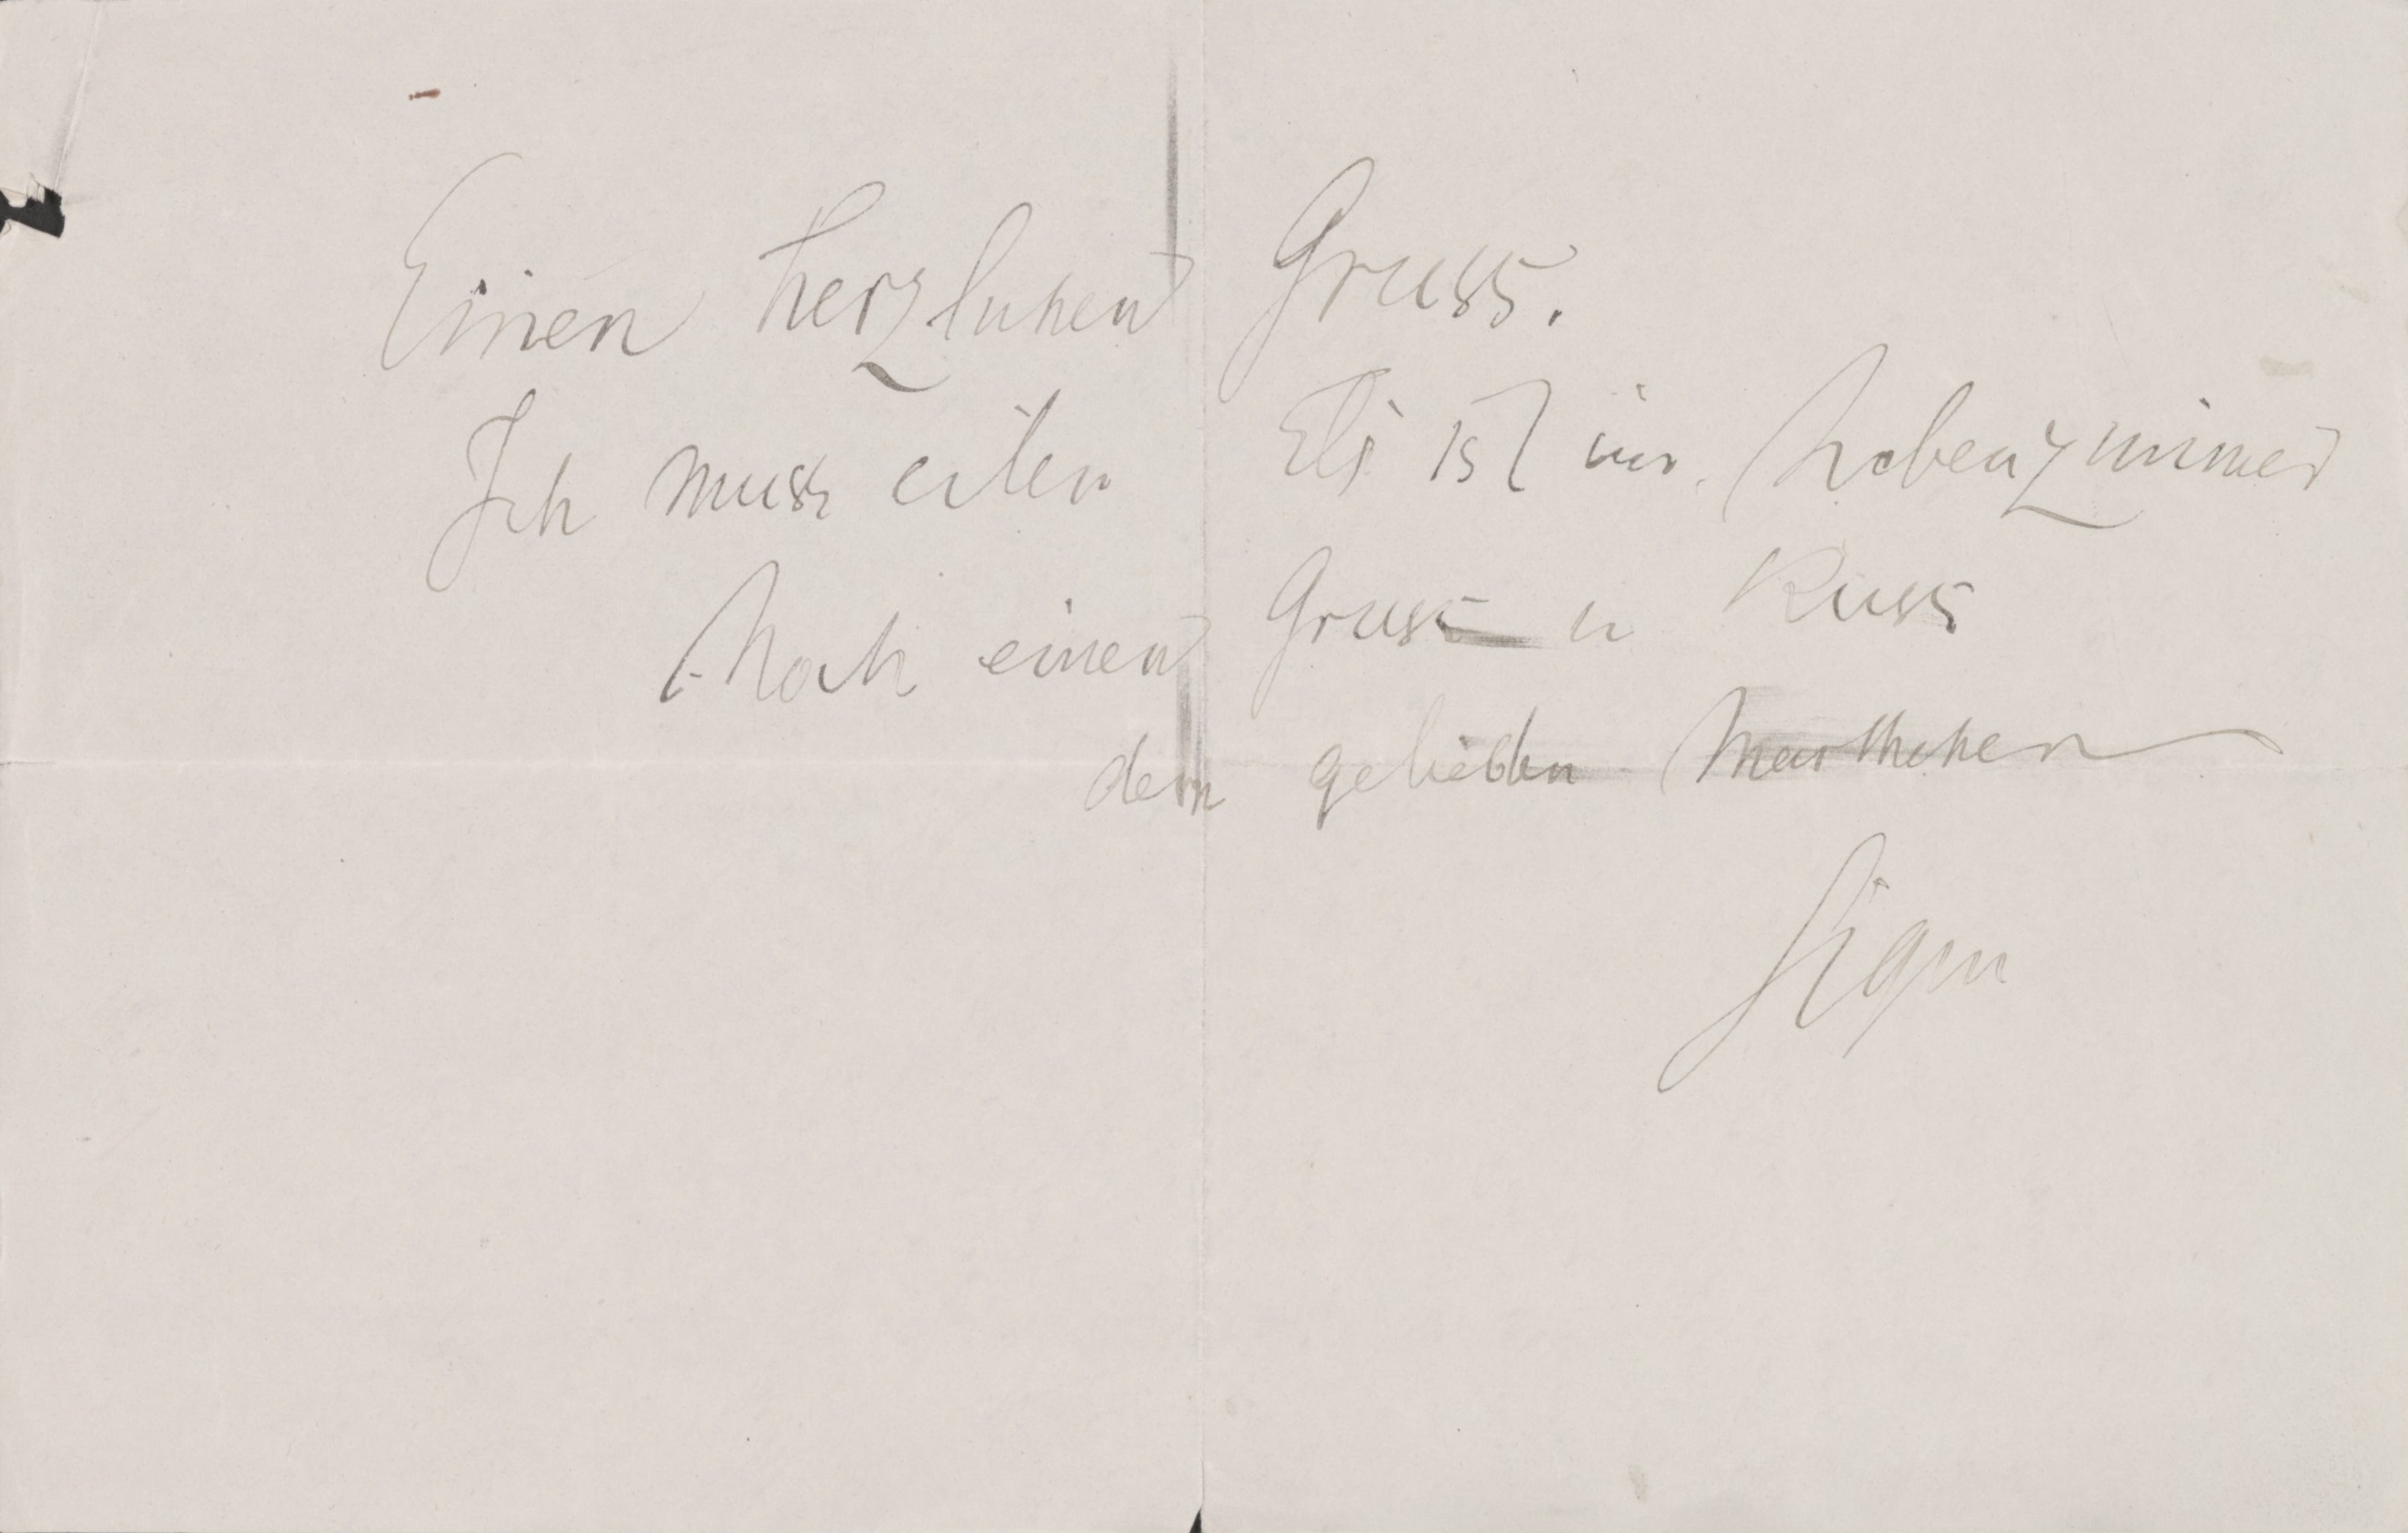 Einen herzlichen Gruss.
Ich muss eilen Eli ist im Nebenzimmer
Noch einen Gruss u Kuss
dem geliebten Marthchen
Sigm